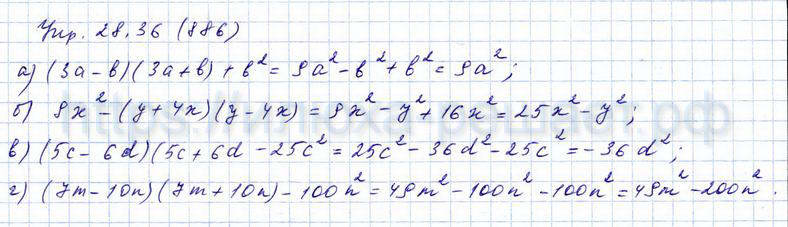 Упр. 28.36 (886)
а) (3a - b)(3a + b) + b² = 9a² - b² + b² = 9a²;
б) 9x² - (y + 4x)(y - 4x) = 9x² - y² + 16x² = 25x² - y²;
в) (5c - 6d)(5c + 6d - 25c² = 25c² - 36d² - 25c² = -36d²;
г) (7m - 10n)(7m + 10n) - 100n² = 49m² - 100n² - 100n² = 49m² - 200n².